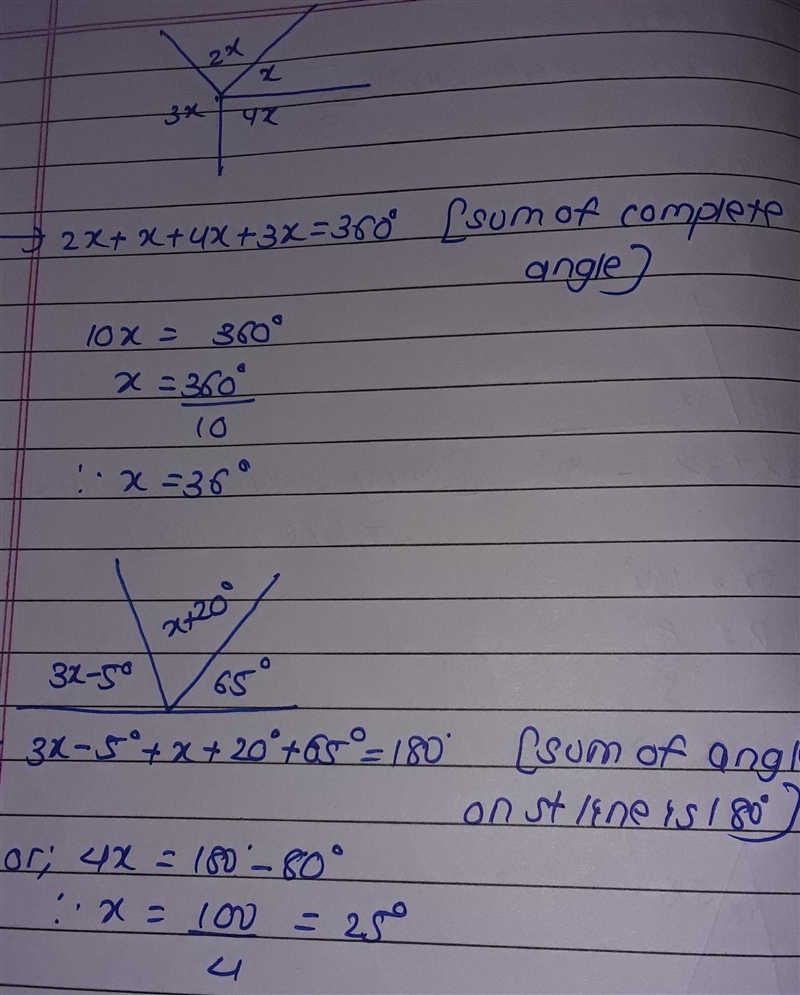 2x
x
3x 4x
→ 2x + x + 4x + 3x = 360° [sum of complete
angle]
10x = 360°
x = 360°
10
∵ x = 36°
x+20°
3x-5° 65°
3x - 5° + x + 20° + 65° = 180° [sum of angl
on st line is 180°]
or; 4x = 180° - 80°
∵ x = 100 = 25°
4